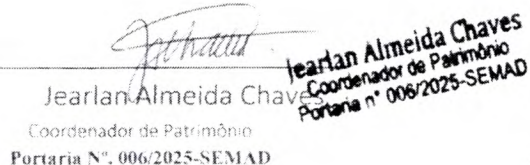 Jearlan Almeida Chaves
Coordenador de Patrimônio
Portaria Nº. 006/2025-SEMAD
Jearlan Almeida Chaves
Coordenador de Patrimônio
Portaria nº 006/2025-SEMAD